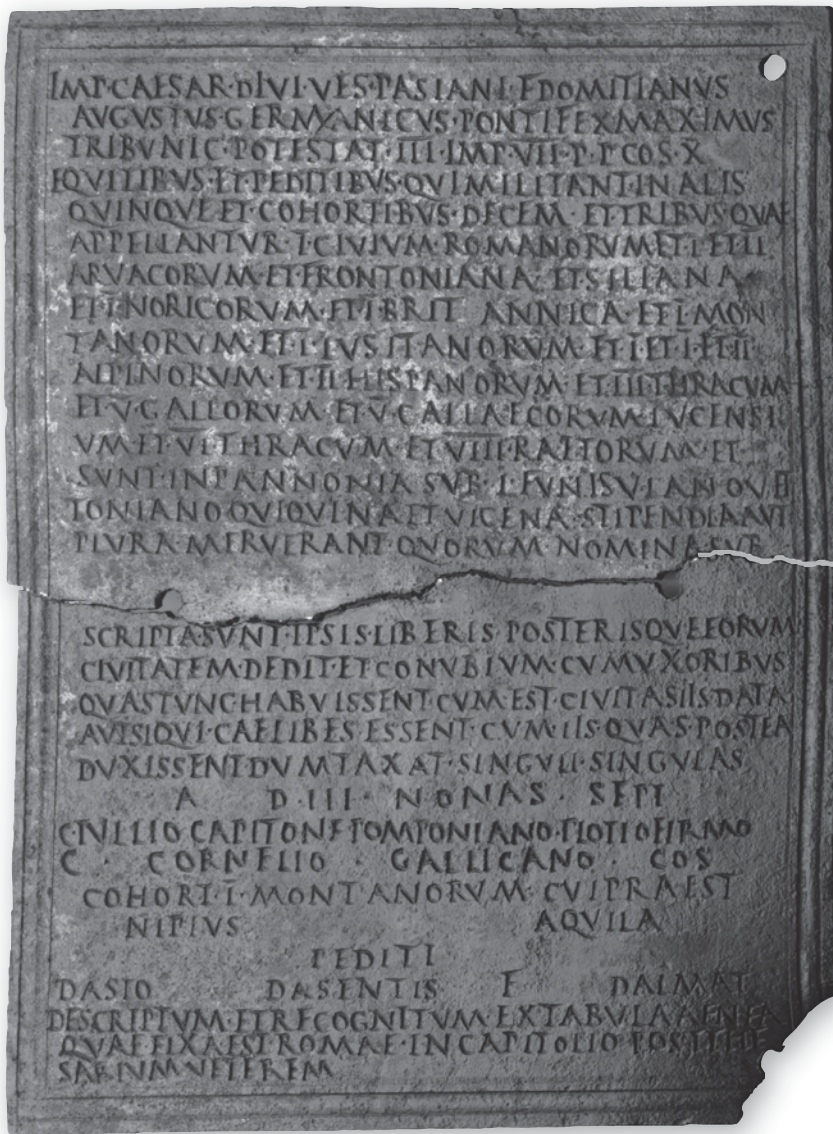 IMP·CAESAR·DIVI·VESPASIANI·F·DOMITIANVS
AVGVSTVS·GERMANICVS·PONTIFEX MAXIMVS
TRIBVNIC·POTESTAT·IIII·IMP·VII·P·P·COS·X
EQVITIBVS·ET·PEDITIBVS·QVI MILITANT·IN ALIS
QVINQVE ET·COHORTIBVS·DECEM·ET TRIBVS·QVAE
APPELLANTVR·I·CIVIVM·ROMANORVM ET·I·ET II
ARVACORVM·ET FRONTONIANA·ET SILIANA
ET·I·NORICORVM·ET·I·BRIT ANNICA·ET·I·MON
TANORVM·ET·I·LVSITANORVM·ET·I·ET·I·ET II
ALPINORVM·ET·II·HISPANORVM·ET·III·THRACVM
ET·V·GALLORVM·ET·V·CALLAECORVM·LVCENSI
VM ET·VI·THRACVM·ET VIII·RAETORVM·ET
SVNT·IN PANNONIA SVB·L·FVNISVLANO VET
TONIANO QVI QVINA ET VICENA·STIPENDIA AVT
PLVRA·MERVERANT·QVORVM·NOMINA SVB
SCRIPTA SVNT·IPSIS·LIBERIS·POSTERISQVE EORVM
CIVITATEM·DEDIT·ET CONVBIVM·CVM VXORIBVS
QVAS TVNC HABVISSENT·CVM·EST·CIVITAS IIS DATA
AVT SI QVI·CAELIBES·ESSENT·CVM·IIS·QVAS·POSTEA
DVXISSENT DVMTAXAT·SINGVLI·SINGVLAS
A D·III·NONAS·SEPT
C·TVLLIO CAPITONE POMPONIANO·PLOTIO FIRMO
C·CORNELIO·GALLICANO·COS
COHORT·I·MONTANORVM·CVI PRAEST
AQVILA
PEDITI
DASIO DASENTIS F DALMAT
DESCRIPTVM·ET RECOGNITVM·EX TABVLA AENEA
QVAE FIXA EST ROMAE·IN CAPITOLIO POST
VETEREM